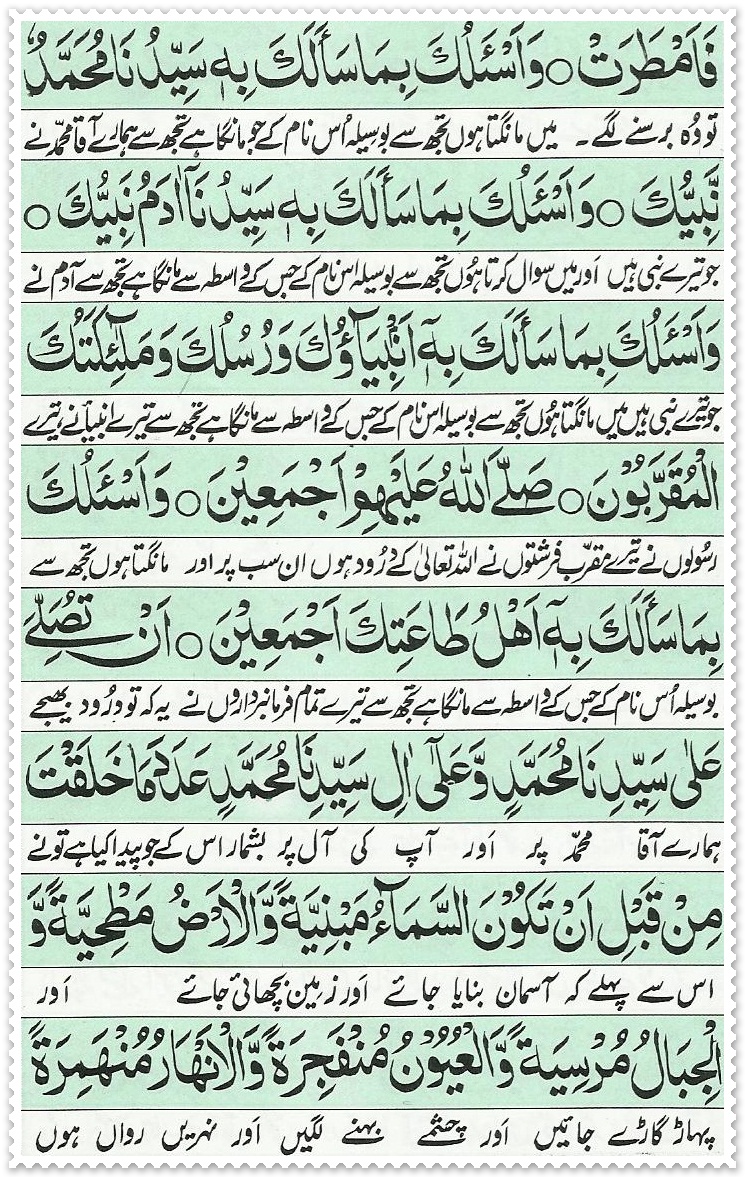 فَاَمْطَرَتْ ○ وَاَسْئَلُكَ بِمَا سَأَلَكَ بِهٖ سَيِّدُنَا مُحَمَّدٌ
تو وُہ برسنے لگے۔ میں مانگتا ہوں تجھ سے بوسیلہ اُس نام کے جو مانگا ہے تجھ سے ہمارے آقا محمدؐ نے
نَّبِيُّكَ ○ وَاَسْئَلُكَ بِمَا سَأَلَكَ بِهٖ سَيِّدُنَآ اٰدَمُ نَبِيُّكَ ○
جو تیرے نبی ہیں اَور میں سوال کرتا ہُوں تجھ سے بوسیلہ اس نام کے جس کے واسطہ سے مانگا ہے تجھ سے آدم نے
وَاَسْئَلُكَ بِمَا سَأَلَكَ بِهٖٓ اَنْۢبِيَآؤُكَ وَرُسُلُكَ وَمَلٰٓئِكَتُكَ
جو تیرے نبی ہیں میں مانگتا ہُوں تجھ سے بوسیلہ اس نام کے جس کے واسطہ سے مانگا ہے تجھ سے تیرے انبیأ نے، تیرے
الْمُقَرَّبُوْنَ ○ صَلَّى اللّٰهُ عَلَيْهِمْ اَجْمَعِيْنَ ○ وَاَسْئَلُكَ
رسُولوں نے تیرے مقرّب فرشتوں نے اللہ تعالیٰ کے دُرُود ہوں ان سب پر اور مانگتا ہوں تجھ سے
بِمَا سَأَلَكَ بِهٖٓ اَهْلُ طَاعَتِكَ اَجْمَعِيْنَ ○ اَنْ تُصَلِّيَ
بوسیلہ اُس نام کے جس کے واسطہ سے مانگا ہے تجھ سے تیرے تمام فرمانبرداروں نے یہ کہ تو درُود بھیجے
عَلٰى سَيِّدِنَا مُحَمَّدٍ وَّعَلٰٓى اٰلِ سَيِّدِنَا مُحَمَّدٍ عَدَدَ مَا خَلَقْتَ
ہمارے آقا محمدؐ پر اَور آپ کی آل پر بشمار اس کے جو پیدا کیا ہے تو نے
مِنْ قَبْلِ اَنْ تَكُوْنَ السَّمَآءُ مَبْنِيَّةً وَّالْاَرْضُ مَطْحِيَّةً وَّ
اس سے پہلے کہ آسمان بنایا جائے اَور زمین بچھائی جائے اَور
الْجِبَالُ مُرْسِيَةً وَّالْعُيُوْنُ مُنْفَجِرَةً وَّالْاَنْهَارُ مُنْهَمِرَةً
پہاڑ گاڑے جائیں اَور چشمے بہنے لگیں اَور نہریں رواں ہوں